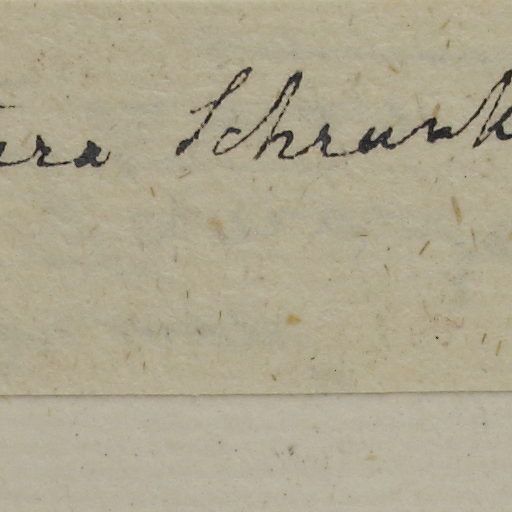 era Schrank